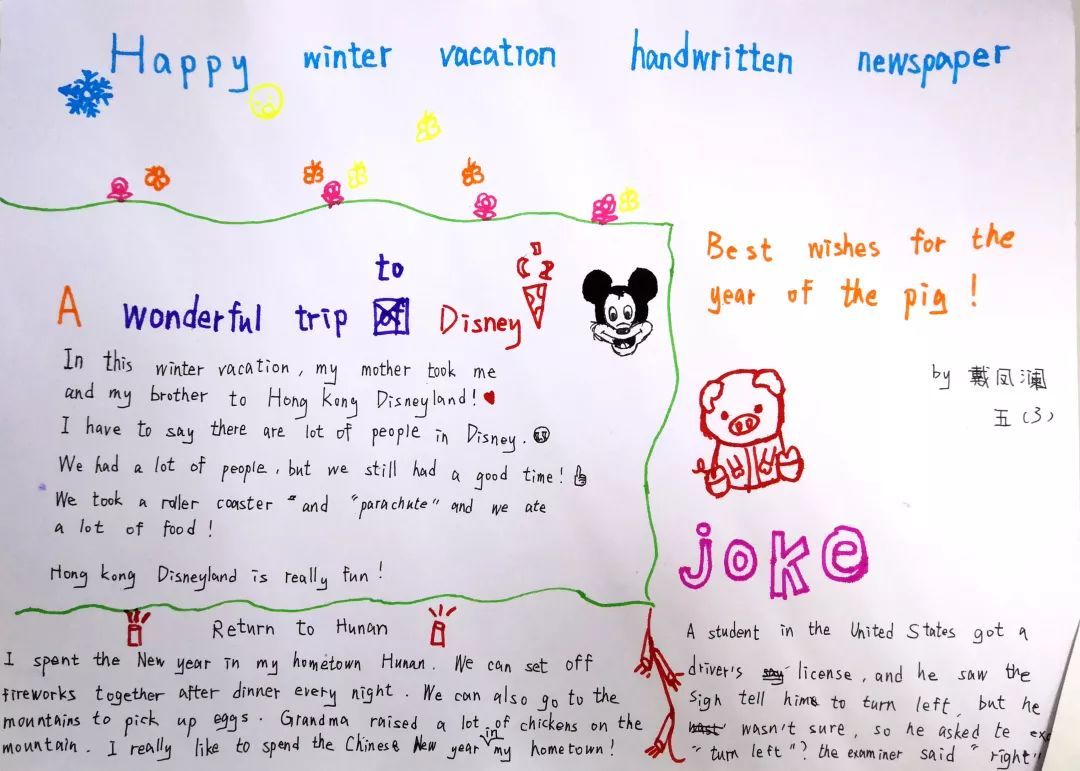 Happy winter vacation handwritten newspaper
A wonderful trip to Disney
In this winter vacation, my mother took me
and my brother to Hong Kong Disneyland!
I have to say there are lot of people in Disney.
We had a lot of people, but we still had a good time!
We took a roller coaster "and "parachute" and we ate
a lot of food!
Hong kong Disneyland is really fun!
Return to Hunan
I spent the New year in my hometown Hunan. We can set off
fireworks together after dinner every night. We can also go to the
mountains to pick up eggs. Grandma raised a lot of chickens on the
mountain. I really like to spend the Chinese New year in my hometown!
Best wishes for the
year of the pig!
by 戴凤澜
五(3)
joke
A student in the United States got a
driver's license, and he saw the
sign tell him to turn left, but he
wasn't sure, so he asked te
"turn left"? the examiner said "right"